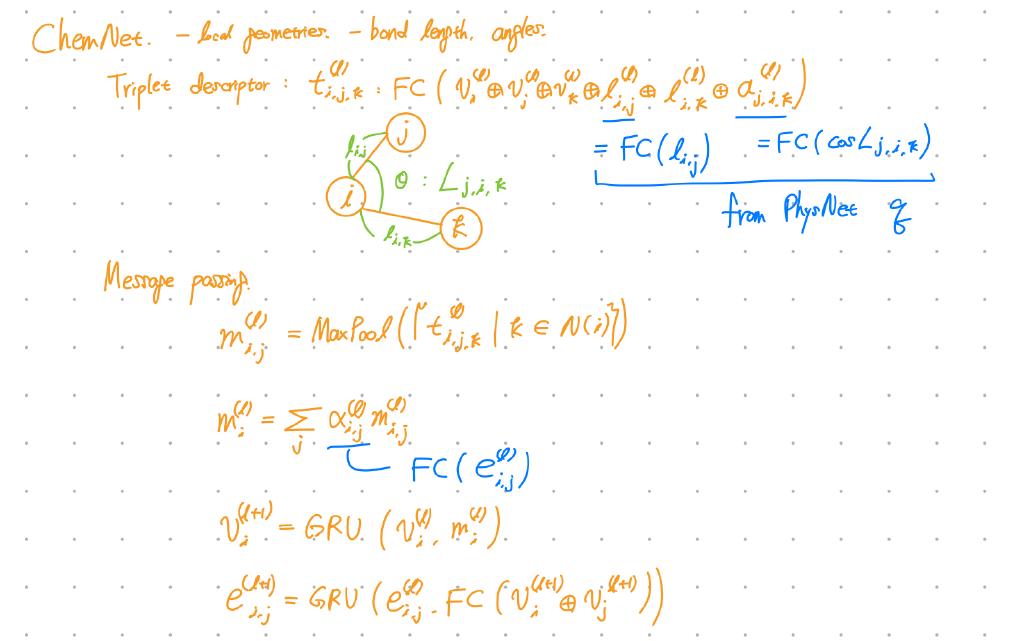 ChemNet. - local geometries. - bond length, angles.
Triplet descriptor : t_{i,j,k}^{(l)} : FC ( v_i^{(l)} ⊕ v_j^{(l)} ⊕ v_k^{(l)} ⊕ l_{i,j}^{(l)} ⊕ l_{i,k}^{(l)} ⊕ a_{j,i,k}^{(l)} )
= FC ( l_{i,j} ) = FC ( cos∠_{j,i,k} )
from PhysNet
j
l_{i,j}
i
θ : ∠_{j,i,k}
k
l_{i,k}
Message passing.
m_{i,j}^{(l)} = MaxPool ( { t_{i,j,k}^{(l)} | k ∈ N(i) } )
m_i^{(l)} = Σ_j α_{i,j}^{(l)} m_{i,j}^{(l)}
FC ( e_{i,j}^{(l)} )
v_i^{(l+1)} = GRU ( v_i^{(l)}, m_i^{(l)} )
e_{i,j}^{(l+1)} = GRU ( e_{i,j}^{(l)}, FC ( v_i^{(l+1)} ⊕ v_j^{(l+1)} ) )